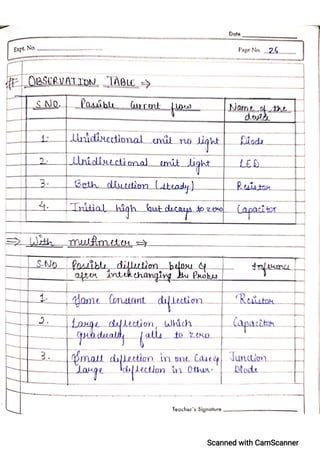 Date
Expt. No.
Page No. 26
# OBSERVATION TABLE ⇒
S.NO. Possible Current flow Name of the device
1. Unidirectional emit no light Diode
2. Unidirectional emit light LED
3. Both direction (steady) Resistor
4. Initial high but decays to zero Capacitor
⇒ With multimeter ⇒
S.NO Possible diflection before & Inference
after interchanging the Probes
1 Same Constant deflection Resistor
2. Large deflection, which Capacitor
gradually falls to zero
3. Small deflection in one Case & Junction
large deflection in Other. Diode
Teacher's Signature
Scanned with CamScanner